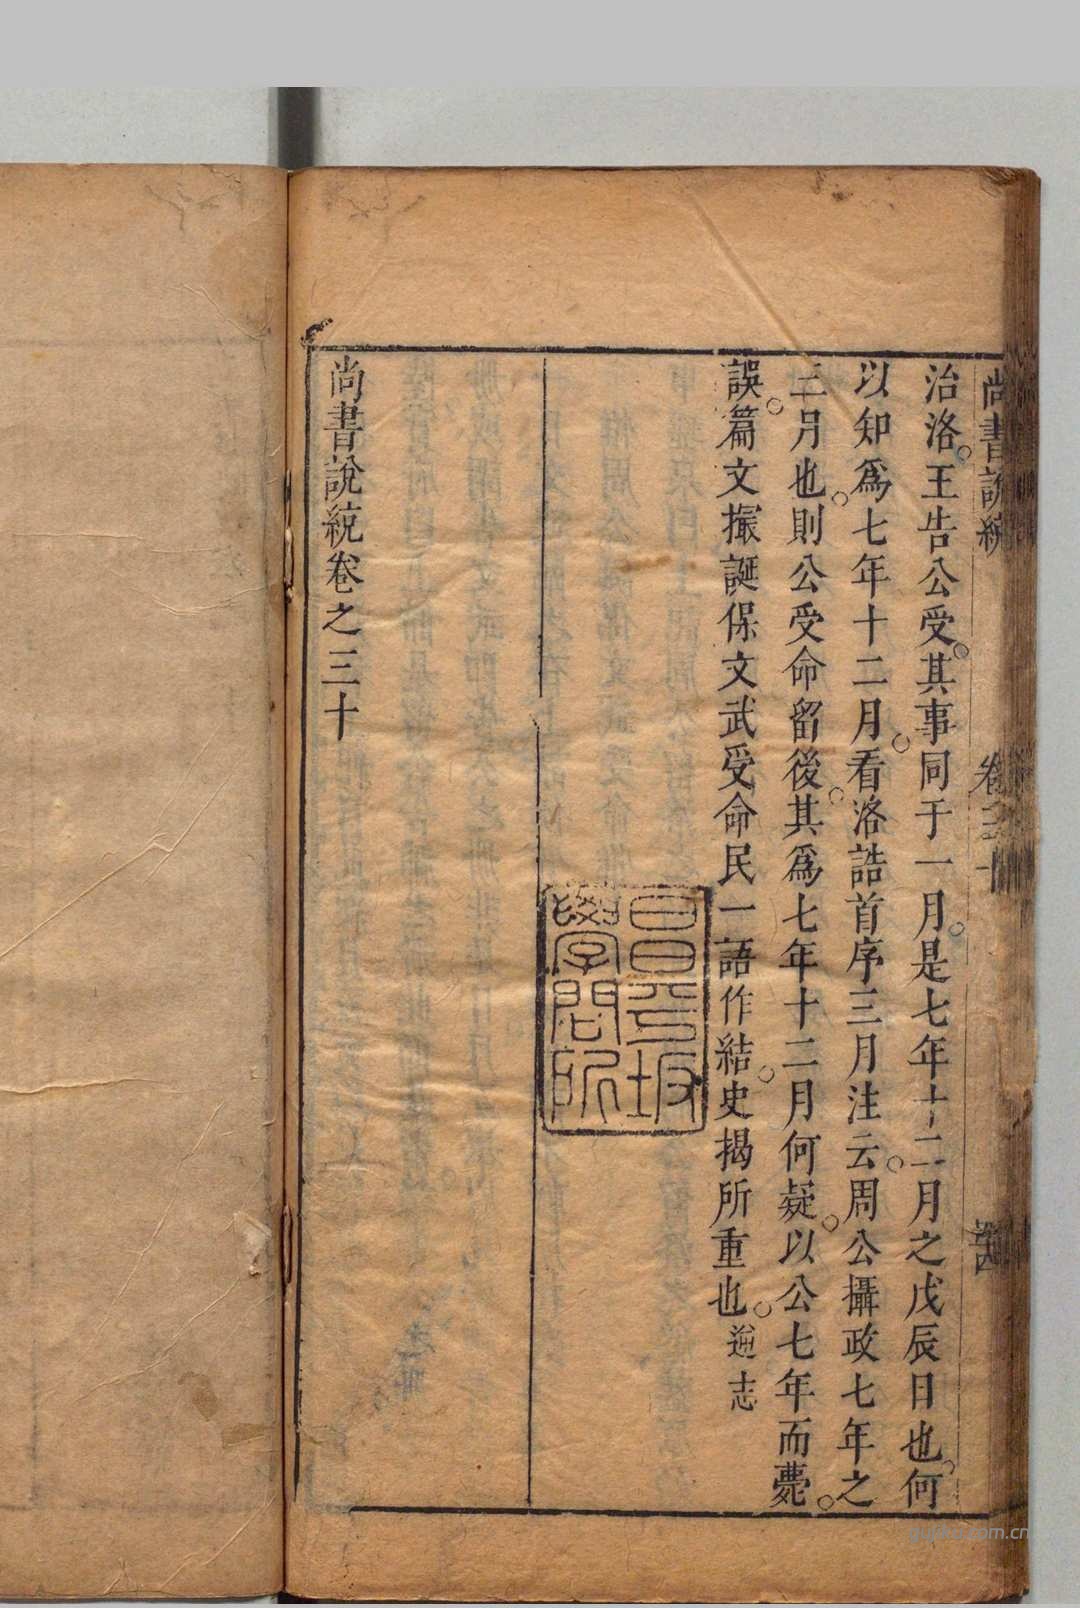 尚書說統 卷三十
治洛王告公受其事同于一月是七年十二月之戊辰日也何
以知爲七年十二月看洛誥首序三月注云周公攝政七年之
三月也則公受命留後其爲七年十二月何疑以公七年而薨
誤篇文撮誕保文武受命民一語作結史揭所重也 逌志
昌平坂
學問所
尚書說統卷之三十
gujiku.com.cn